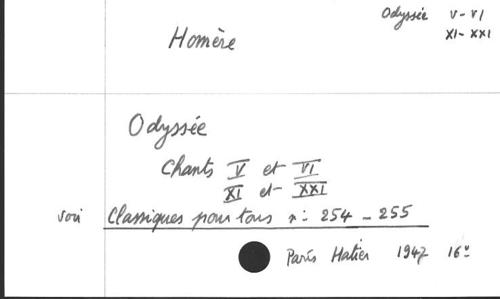 Odyssée V - VI
XI - XXI
Homère
Odyssée
Chants V et VI
XI et XXI
voir Classiques pour tous n: 254 - 255
Paris Hatier 1947 16°